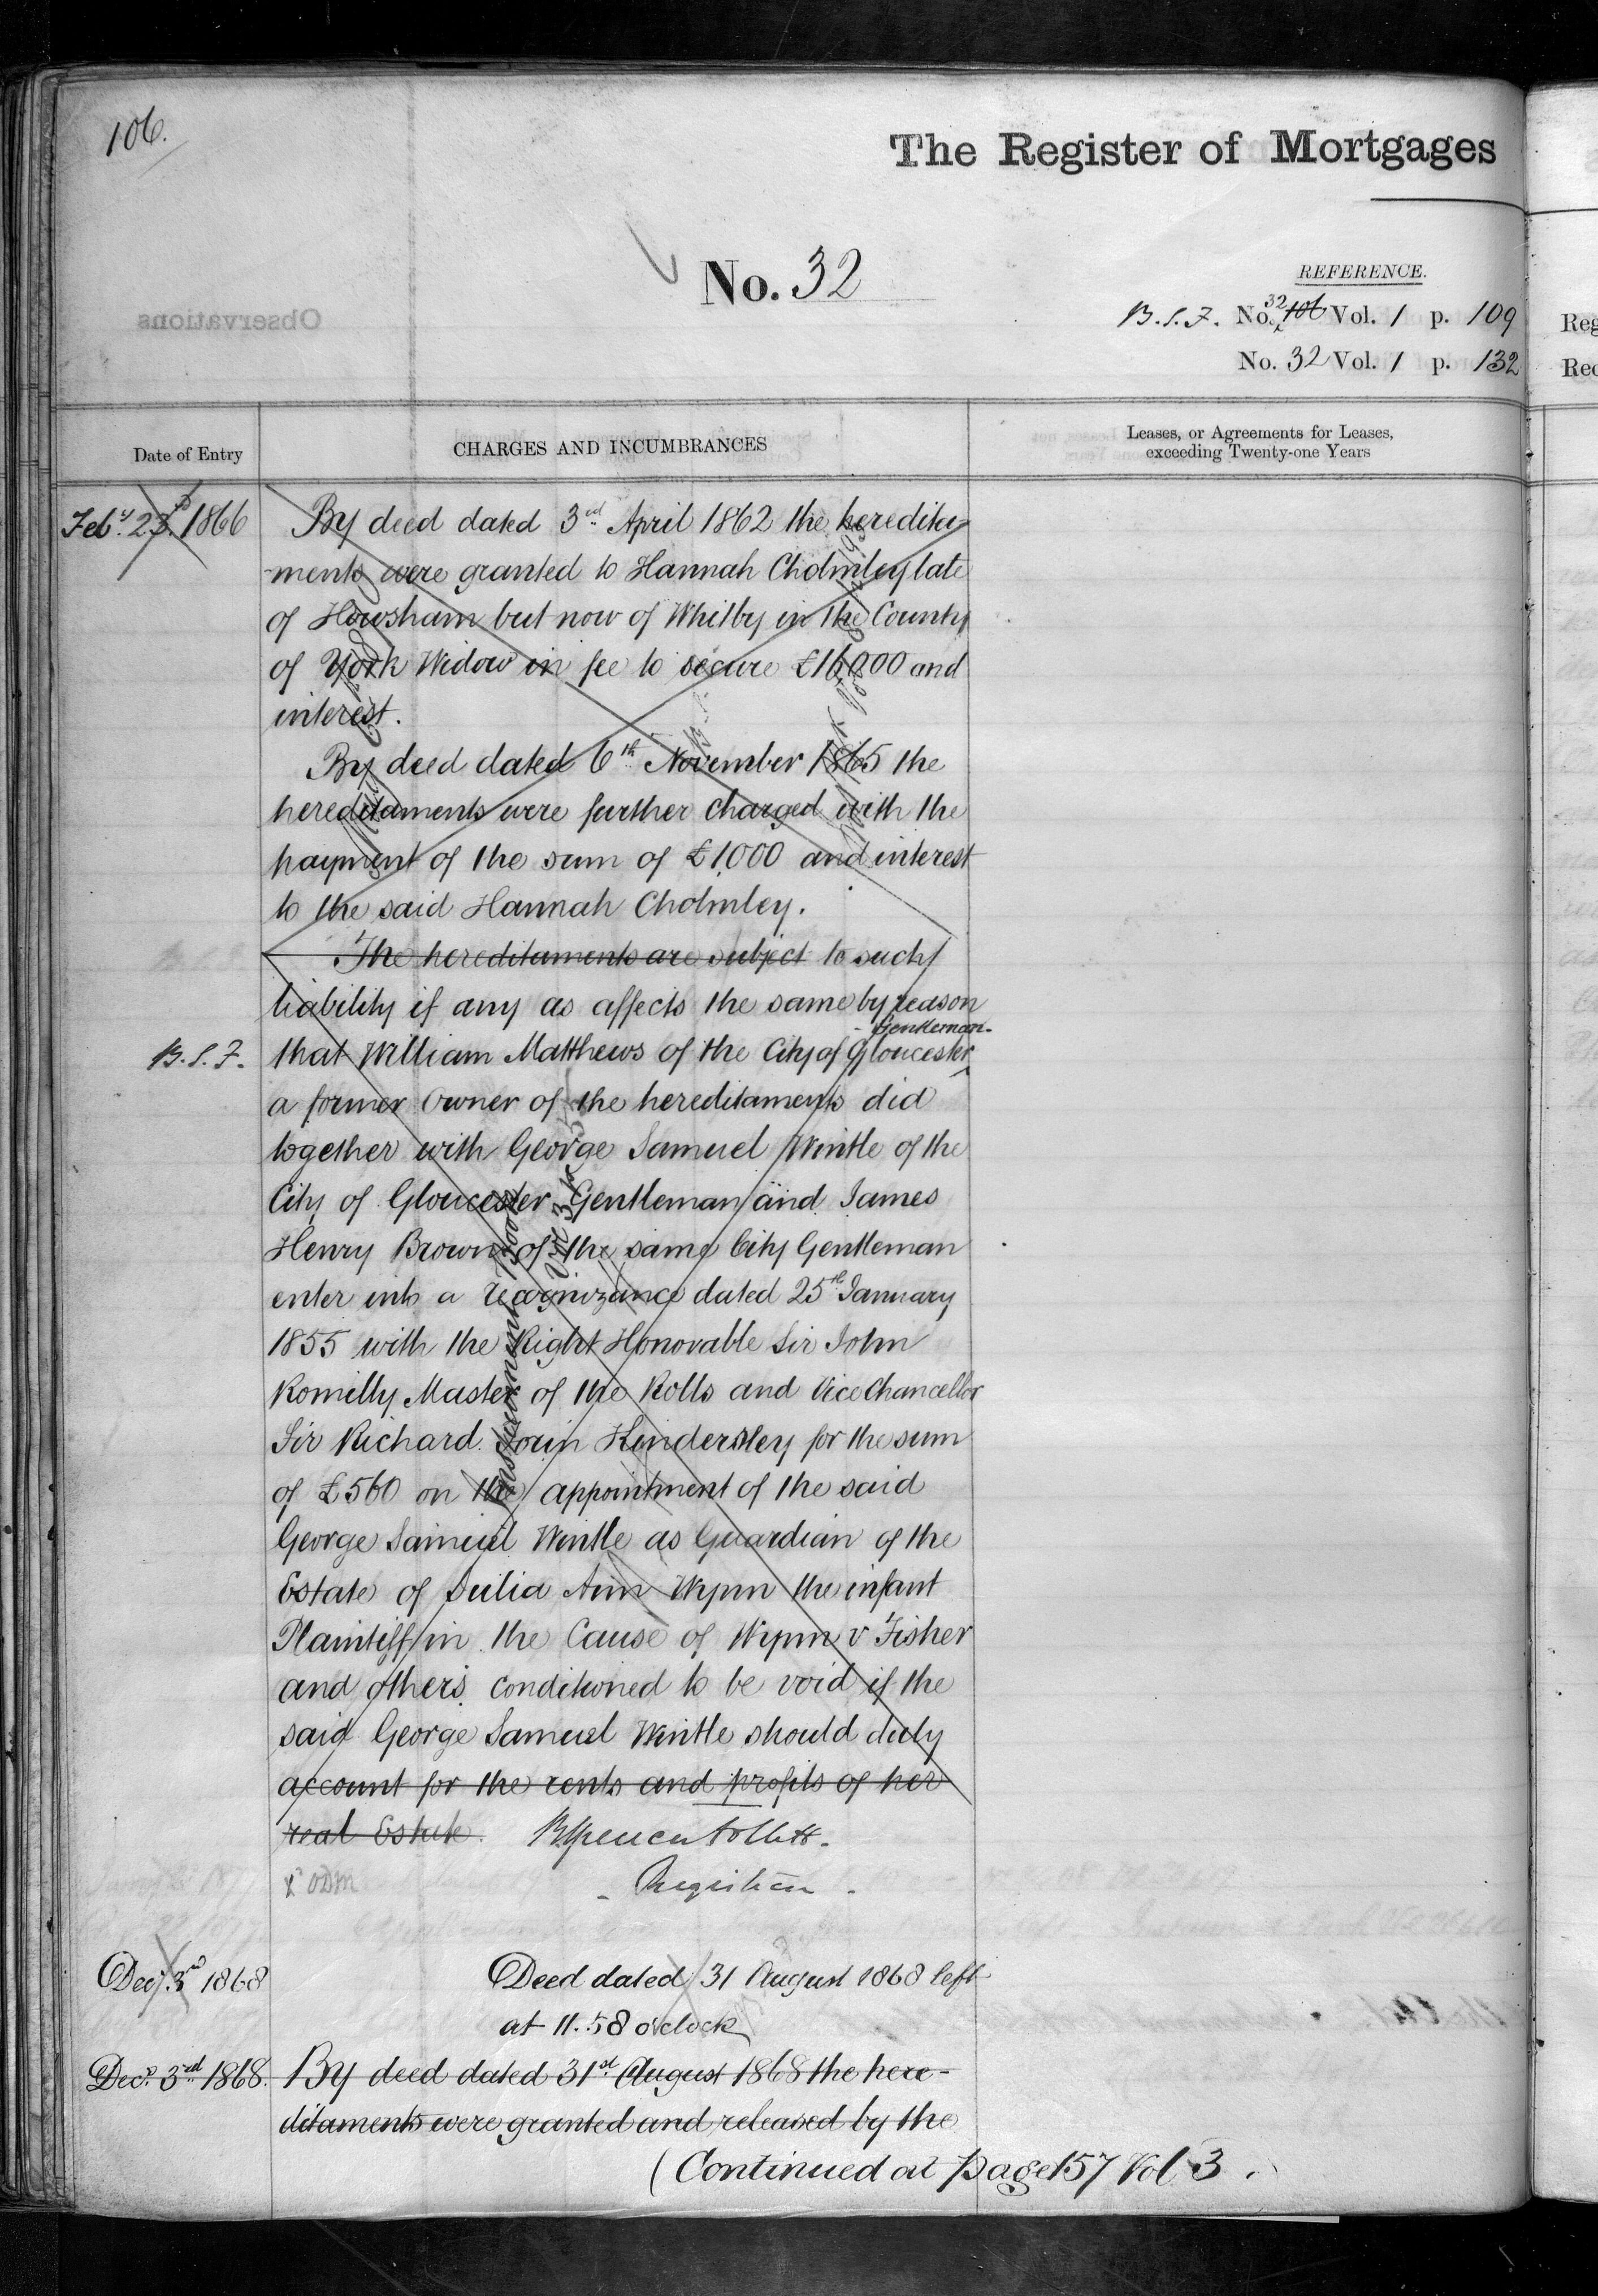 106.
The Register of Mortgages
No. 32
REFERENCE.
B.S.F. No. 32 106 Vol. 1 p. 109
No. 32 Vol. 1 p. 132
Observations
Reg
Rec
Date of Entry
CHARGES AND INCUMBRANCES
Leases, or Agreements for Leases,
exceeding Twenty-one Years
Feby. 23rd 1866
By deed dated 3rd April 1862 the heredita
-ments were granted to Hannah Cholmley late
of Howsham but now of Whitby in the County
of York Widow in fee to secure £16000 and
interest.
By deed dated 6th November 1865 the
hereditaments were further charged with the
payment of the sum of £1,000 and interest
to the said Hannah Cholmley.
The hereditaments are subject to such
liability if any as affects the same by reason
Gentleman
B.S.F.
that William Matthews of the City of Gloucester
a former Owner of the hereditaments did
together with George Samuel Wintle of the
City of Gloucester Gentleman and James
Henry Brown of the same City Gentleman
enter into a recognizance dated 25th January
1855 with the Right Honorable Sir John
Romilly Master of the Rolls and Vice Chancellor
Sir Richard Torin Kindersley for the sum
of £560 on the appointment of the said
George Samuel Wintle as Guardian of the
Estate of Julia Ann Wynn the infant
Plaintiff in the Cause of Wynn v Fisher
and others conditioned to be void if the
said George Samuel Wintle should duly
account for the rents and profits of her
real Estate. B Spencer Follett.
- Registrar -
Instrument Book
Decr. 3rd 1868
Deed dated 31 August 1868 left
at 11.58 o'clock
Decr. 3rd 1868.
By deed dated 31st August 1868 the here-
ditaments were granted and released by the
(Continued at page 157 Vol 3.